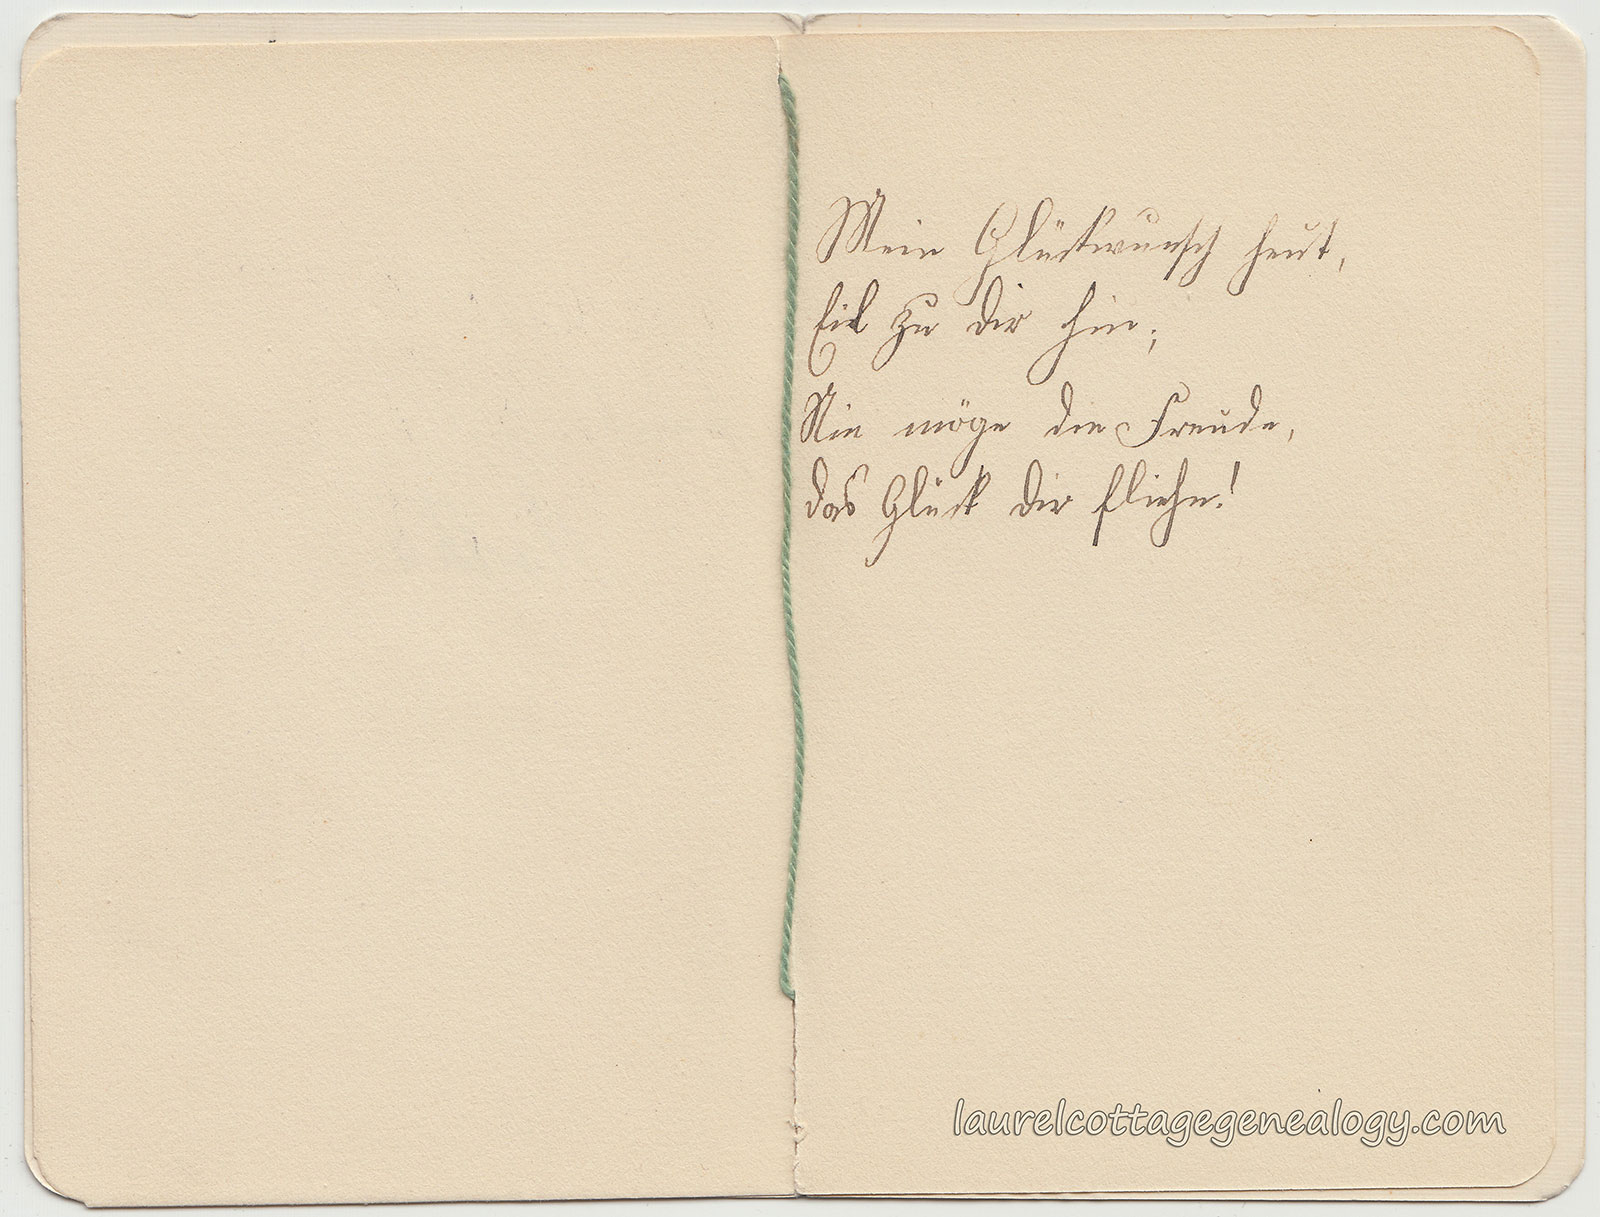 Mein Glückwunsch heut,
Eil zu dir hin;
Nie möge die Freude,
das Glück dir fliehn!
laurelcottagegenealogy.com